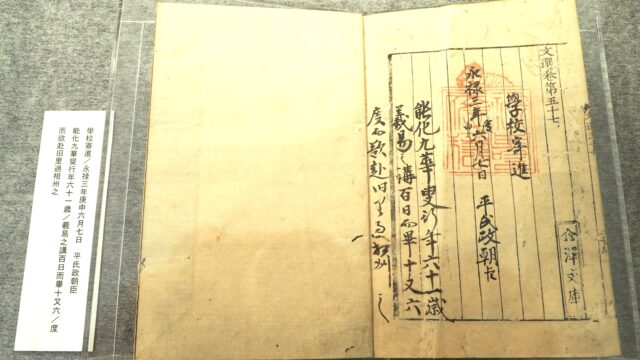 文選卷第五十七
學校寄進
永禄三年庚申六月七日 平氏政朝臣
能化九華叟行年六十一歳
羲易之講百日而畢十又六
度而欲赴旧里過相州之
金澤文庫
學校寄進／永禄三年庚申六月七日 平氏政朝臣
能化九華叟行年六十一歳／羲易之講百日而畢十又六／度
而欲赴旧里過相州之